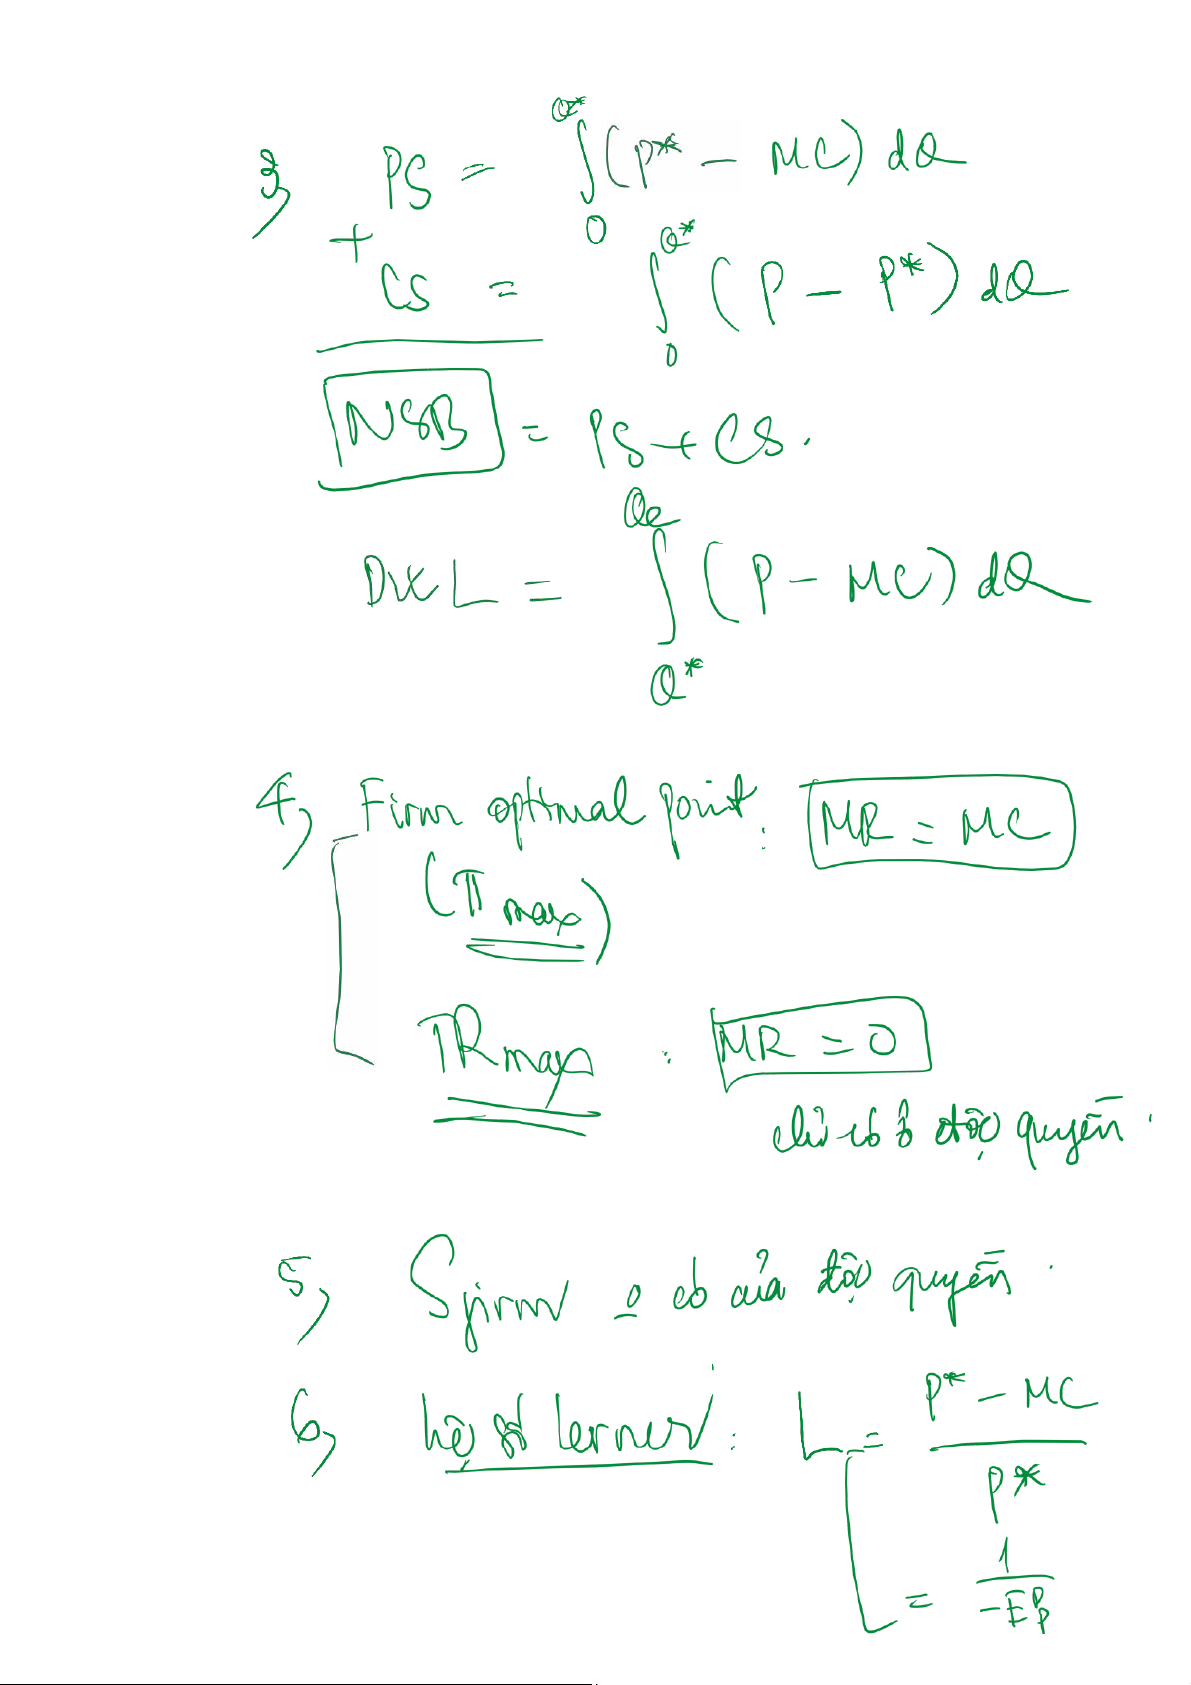 3, PS = ∫₀^{Q*} (P* − MC) dQ
+
CS = ∫₀^{Q*} (P − P*) dQ
NSB = PS + CS.
DWL = ∫_{Q*}^{Qe} (P − MC) dQ
4, Firm optimal point: MR = MC
(π max)
TR max : MR = 0
chỉ có ở độc quyền.
5, Sfirm o có của độc quyền.
6, hệ số lerner: L = (P* − MC) / P*
= 1 / −E^P_P